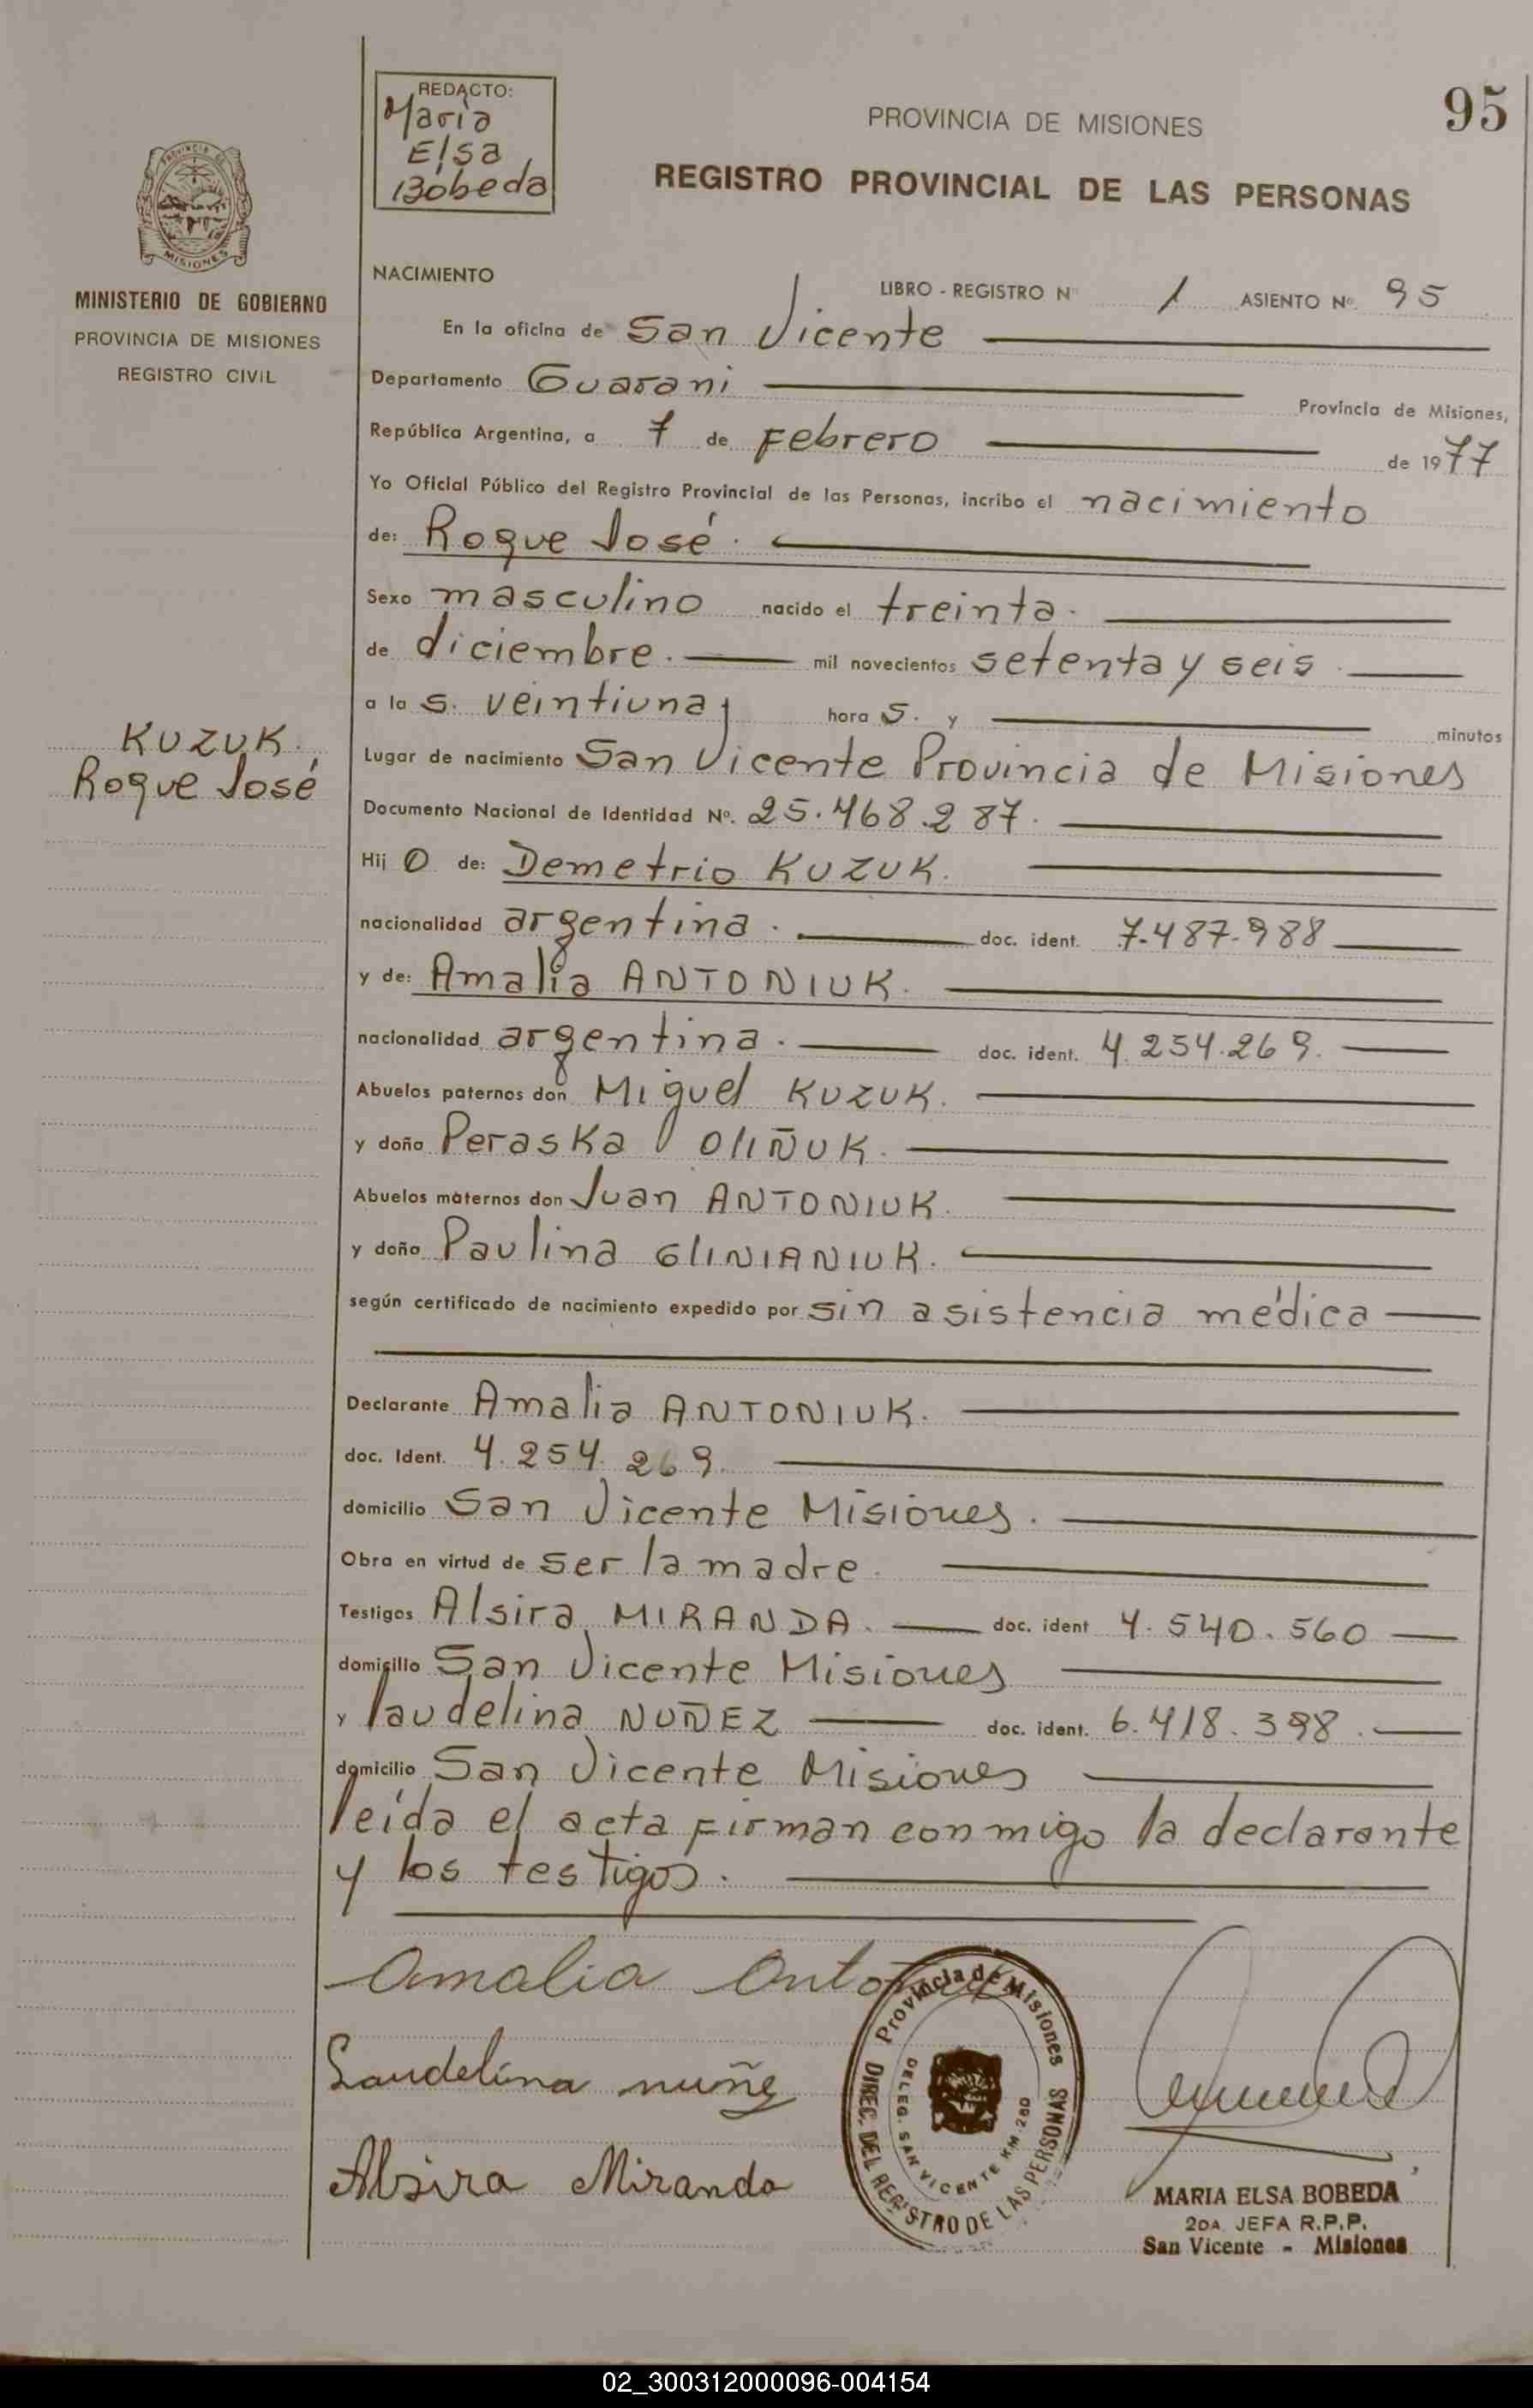 REDACTO:
Maria
Elsa
Bóbeda
95
PROVINCIA DE MISIONES
REGISTRO PROVINCIAL DE LAS PERSONAS
PROVINCIA DE
MISIONES
MINISTERIO DE GOBIERNO
PROVINCIA DE MISIONES
REGISTRO CIVIL
KUZUK.
Roque José
NACIMIENTO
LIBRO - REGISTRO Nº 1 ASIENTO Nº. 95
En la oficina de San Vicente
Departamento Guarani Provincia de Misiones,
República Argentina, a 7 de Febrero de 1977
Yo Oficial Público del Registro Provincial de las Personas, incribo el nacimiento
de: Roque José.
Sexo masculino nacido el treinta.
de diciembre. mil novecientos setenta y seis.
a la s. veintiuna hora s. y minutos
Lugar de nacimiento San Vicente Provincia de Misiones
Documento Nacional de Identidad Nº. 25.468.287.
Hij o de: Demetrio KUZUK.
nacionalidad argentina. doc. ident. 7.487.988
y de: Amalia ANTONIUK.
nacionalidad argentina. doc. ident. 4.254.269.
Abuelos paternos don Miguel KUZUK.
y doña Peraska OlIÑUK.
Abuelos maternos don Juan ANTONIUK.
y doña Paulina GlINIANIUK.
según certificado de nacimiento expedido por sin asistencia médica
Declarante Amalia ANTONIUK.
doc. Ident. 4.254.269.
domicilio San Vicente Misiones.
Obra en virtud de ser la madre.
Testigos Alsira MIRANDA. doc. ident 4.540.560
domicilio San Vicente Misiones
y laudelina NUÑEZ doc. ident. 6.418.398.
domicilio San Vicente Misiones
leída el acta Firman conmigo la declarante
y los testigos.
Amalia Antoniuk
Laudelina nuñez
Alsira Miranda
Provincia de Misiones
DIREC. DEL REGISTRO DE LAS PERSONAS
DELEG. SAN VICENTE KM. 260
MARIA ELSA BOBEDA
2DA. JEFA R.P.P.
San Vicente - Misiones
02_300312000096-004154